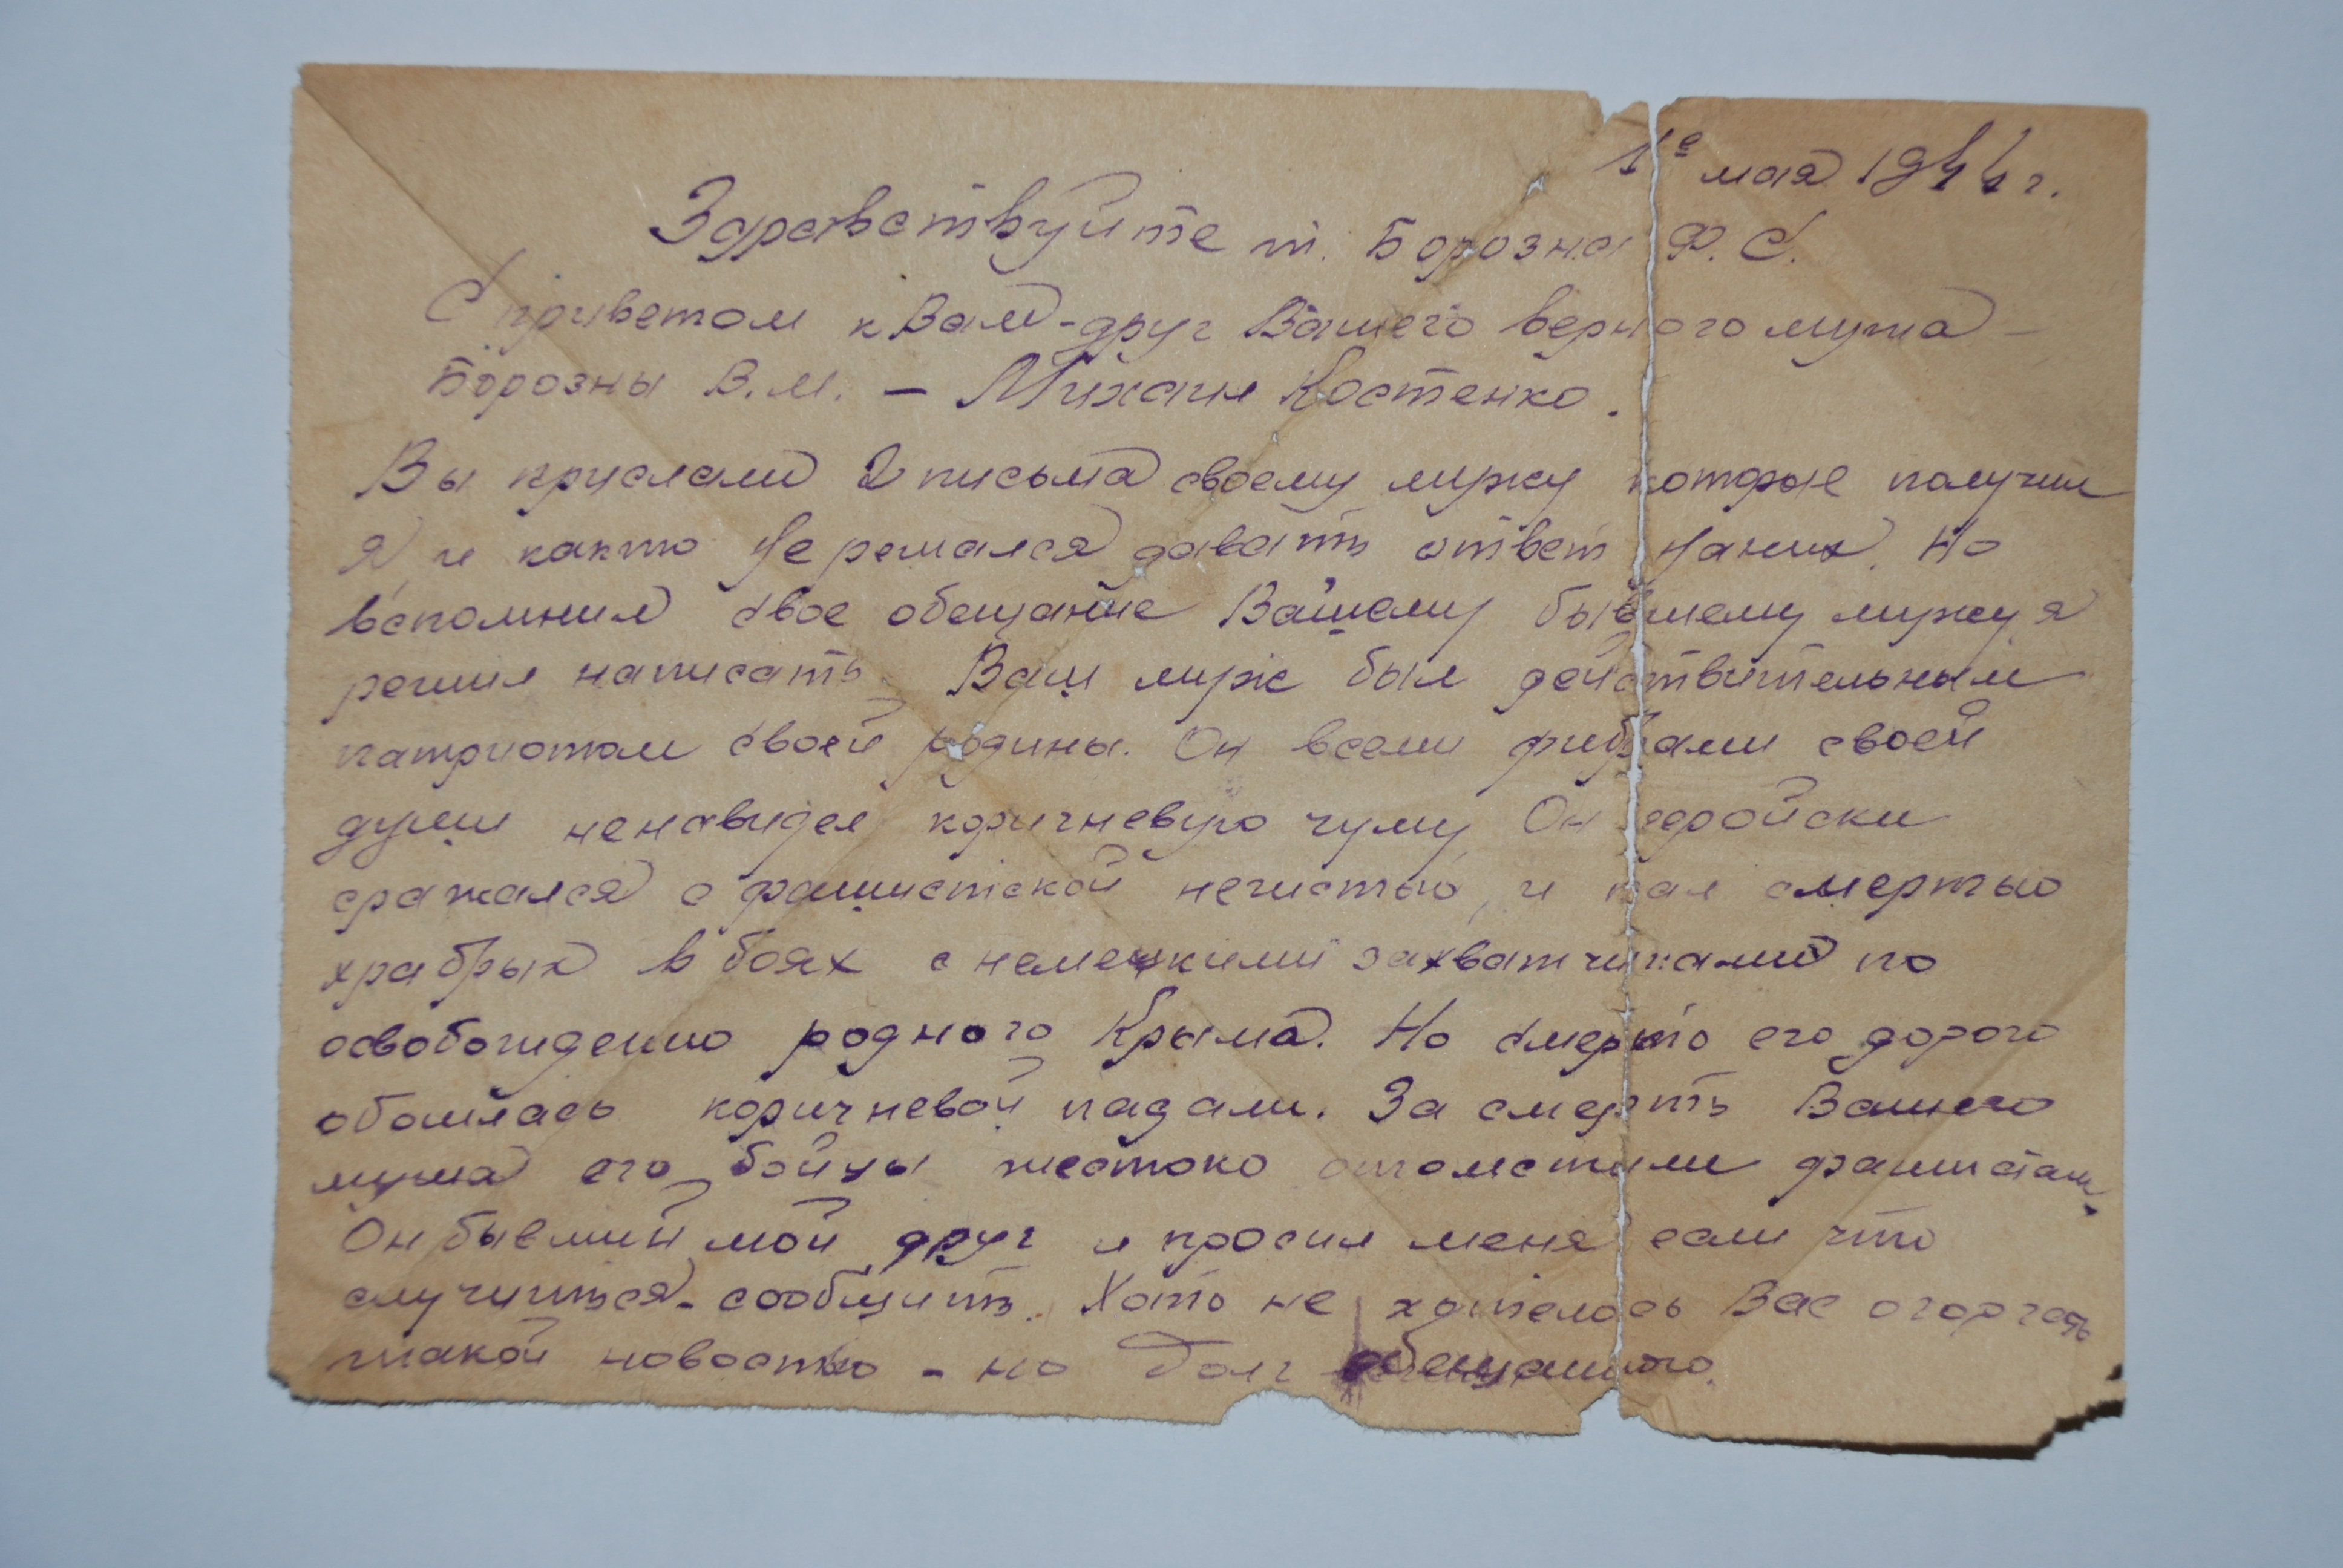 1е мая 1944 г.
Здравствуйте т. Борозна Ф. С.
С приветом к Вам - друг Вашего верного мужа -
Борозны В. М. - Михаил Костенко.
Вы прислали 2 письма своему мужу которые получил
я и както не решался давать ответ на них. Но
вспомнил свое обещание Вашему бывшему мужу я
решил написать. Ваш муж был действительным
патриотом своей родины. Он всеми фибрами своей
души ненавидел коричневую чуму. Он геройски
сражался с фашистской нечистью, и пал смертью
храбрых в боях с немецкими захватчиками по
освобождению родного Крыма. Но смерть его дорого
обошлась коричневой падали. За смерть Вашего
мужа его бойцы жестоко отомстили фашистам.
Он бывший мой друг и просил меня если что
случиться - сообщить. Хоть не хотелось Вас огорчать
такой новостью - но долг обещанного.